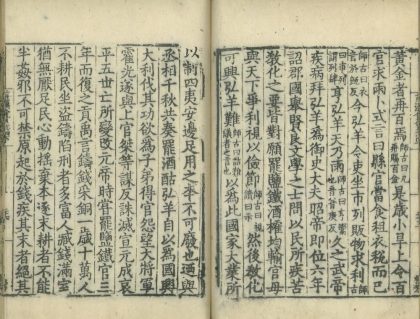 黃金者再百焉是歲小旱上令百
官求雨卜式言曰縣官當食租衣稅而已
今弘羊令吏坐市列販物求利
亨弘羊天乃雨久之武帝
疾病拜弘羊為御史大夫昭帝即位六年
詔郡國舉賢良文學之士問以民所疾苦
教化之要皆對願罷鹽鐵酒榷均輸官毋
與天下爭利視以儉節師古曰視讀曰示然後教化
可興弘羊難以為此國家大業所
以制四夷安邊足用之本不可廢也迺與
丞相千秋共奏罷酒酤弘羊自以為國興
大利伐其功欲為子弟得官怨望大將軍
霍光遂與上官桀等謀反誅滅宣元成哀
平五世亡所變改元帝時嘗罷鹽鐵官三
年而復之貢禹言鑄錢采銅一歲十萬人
不耕民坐盜鑄陷刑者多富人臧錢滿室
猶無厭足民心動搖棄本逐末耕者不能
半姦邪不可禁原起於錢疾其末者絕其